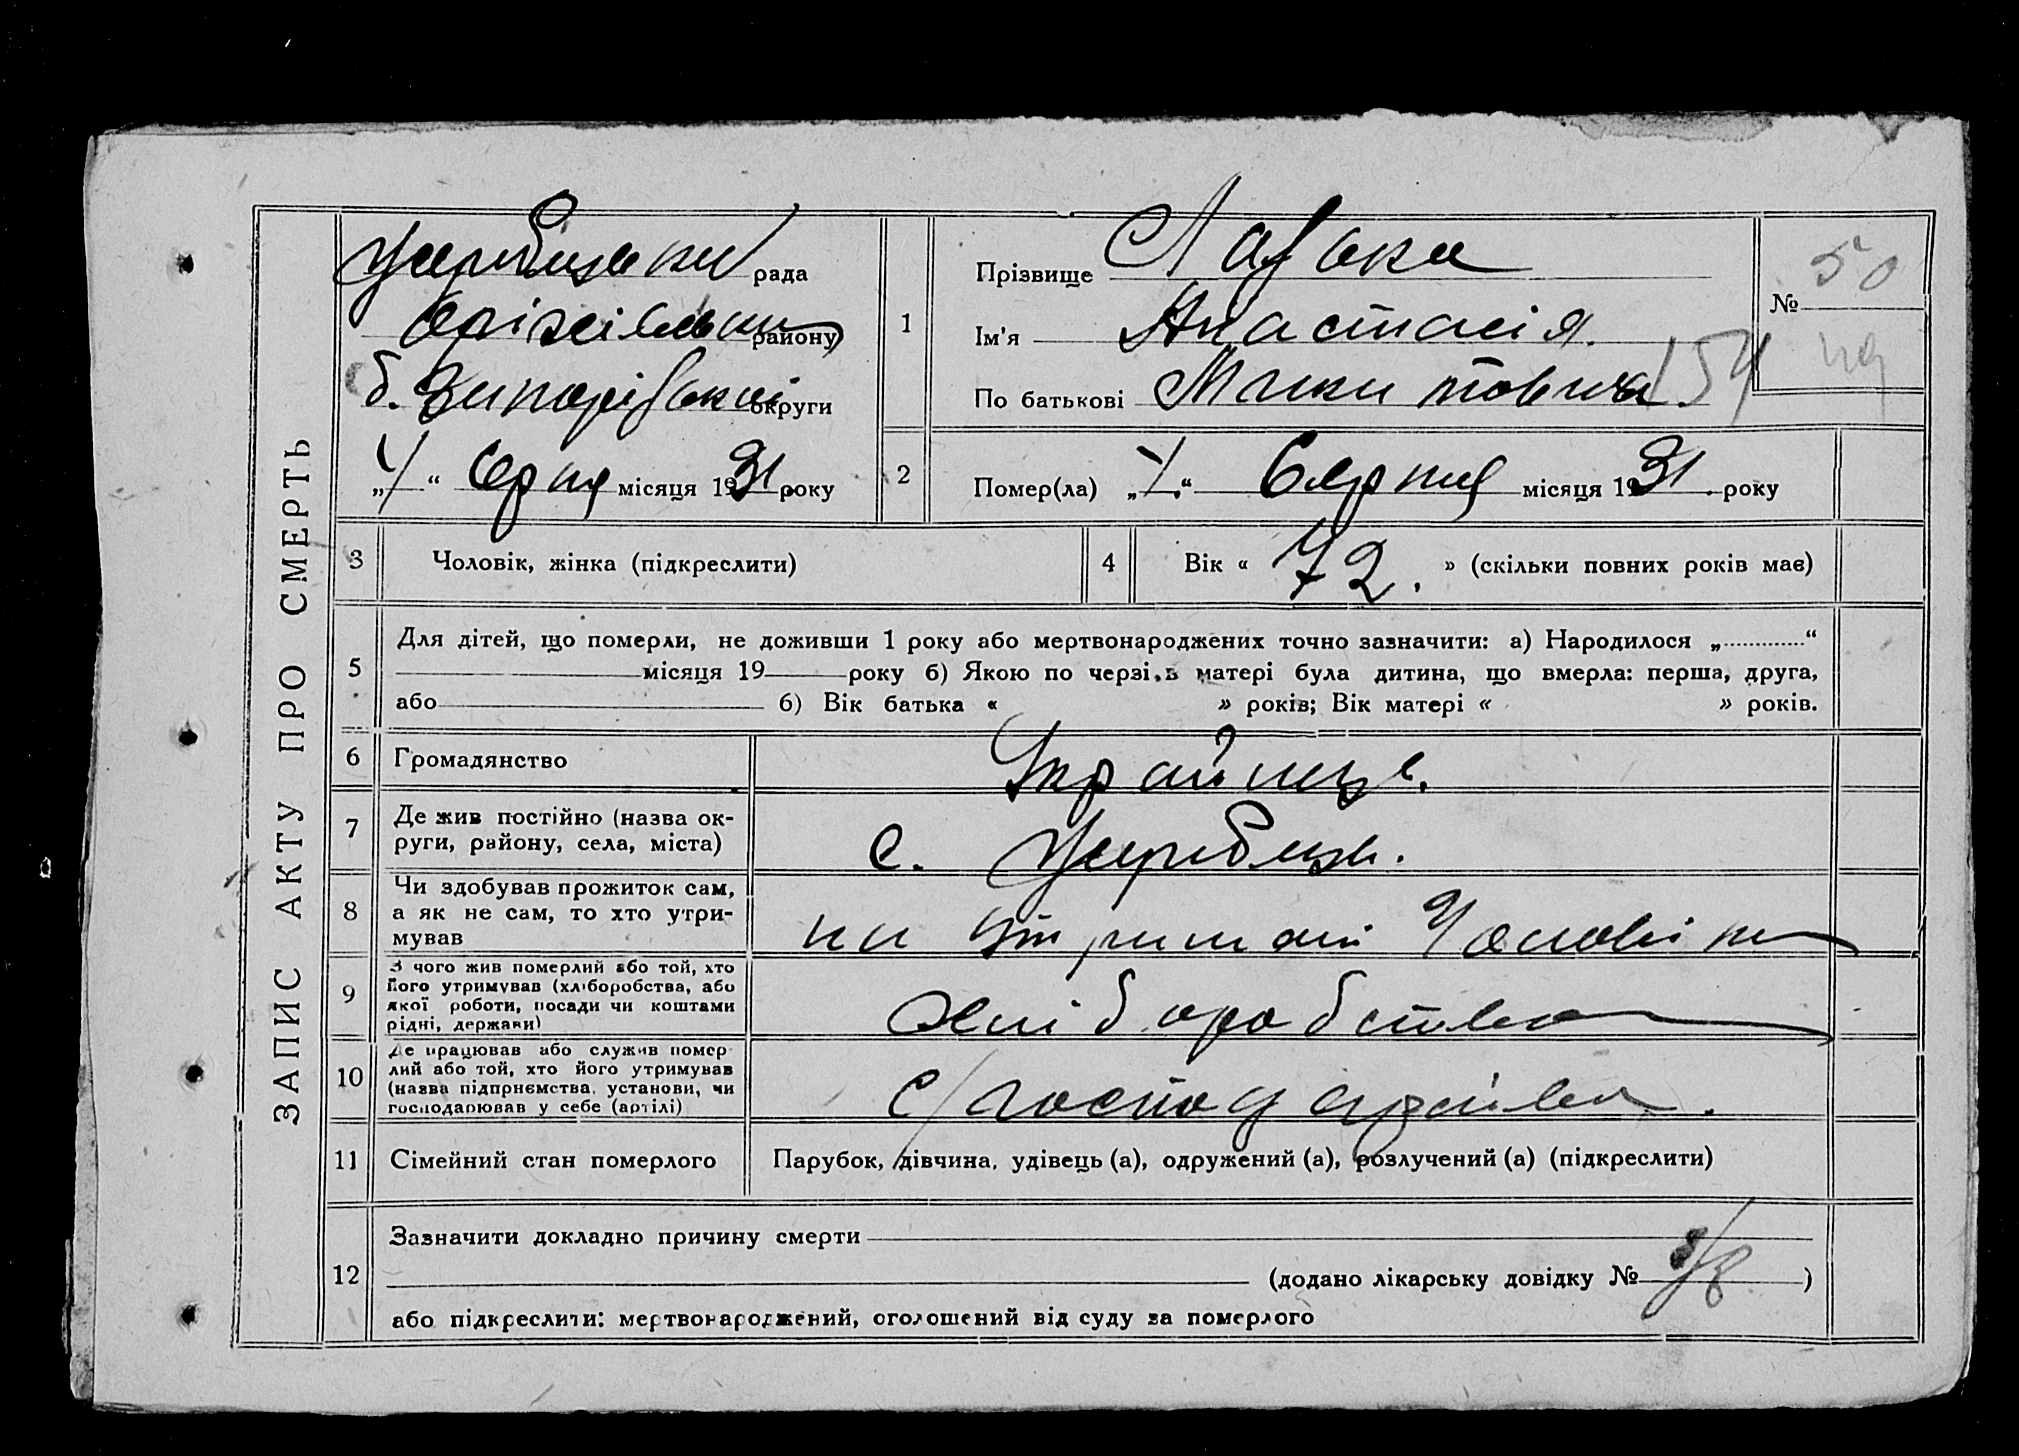 ЗАПИС АКТУ ПРО СМЕРТЬ
рада
району
б. Запорізької округи
„ “ Серпня місяця 1931 року
1
Прізвище
Ім'я Анастасія.
По батькові Микитовна 154
№ 50
2
Помер(ла) „ “ Серпня місяця 1931 року
3
Чоловік, жінка (підкреслити)
4
Вік « 72. » (скільки повних років має)
5
Для дітей, що померли, не доживши 1 року або мертвонароджених точно зазначити: а) Народилося „ “
місяця 19 року б) Якою по черзі в матері була дитина, що вмерла: перша, друга,
або б) Вік батька « » років; Вік матері « » років.
6
Громадянство
Україн.
7
Де жив постійно (назва ок-
руги, району, села, міста)
с.
8
Чи здобував прожиток сам,
а як не сам, то хто утри-
мував
на утриман Чоловіка
9
З чого жив померлий або той, хто
його утримував (хліборобства, або
якої роботи, посади чи коштами
рідні, держави)
Хліборобство
10
Де працював або служив помер-
лий або той, хто його утримував
(назва підприємства, установи, чи
господарював у себе (артілі)
с/господарстві.
11
Сімейний стан померлого
Парубок, дівчина, удівець (а), одружений (а), розлучений (а) (підкреслити)
12
Зазначити докладно причину смерти
(додано лікарську довідку № )
або підкреслити: мертвонароджений, оголошений від суду за померлого